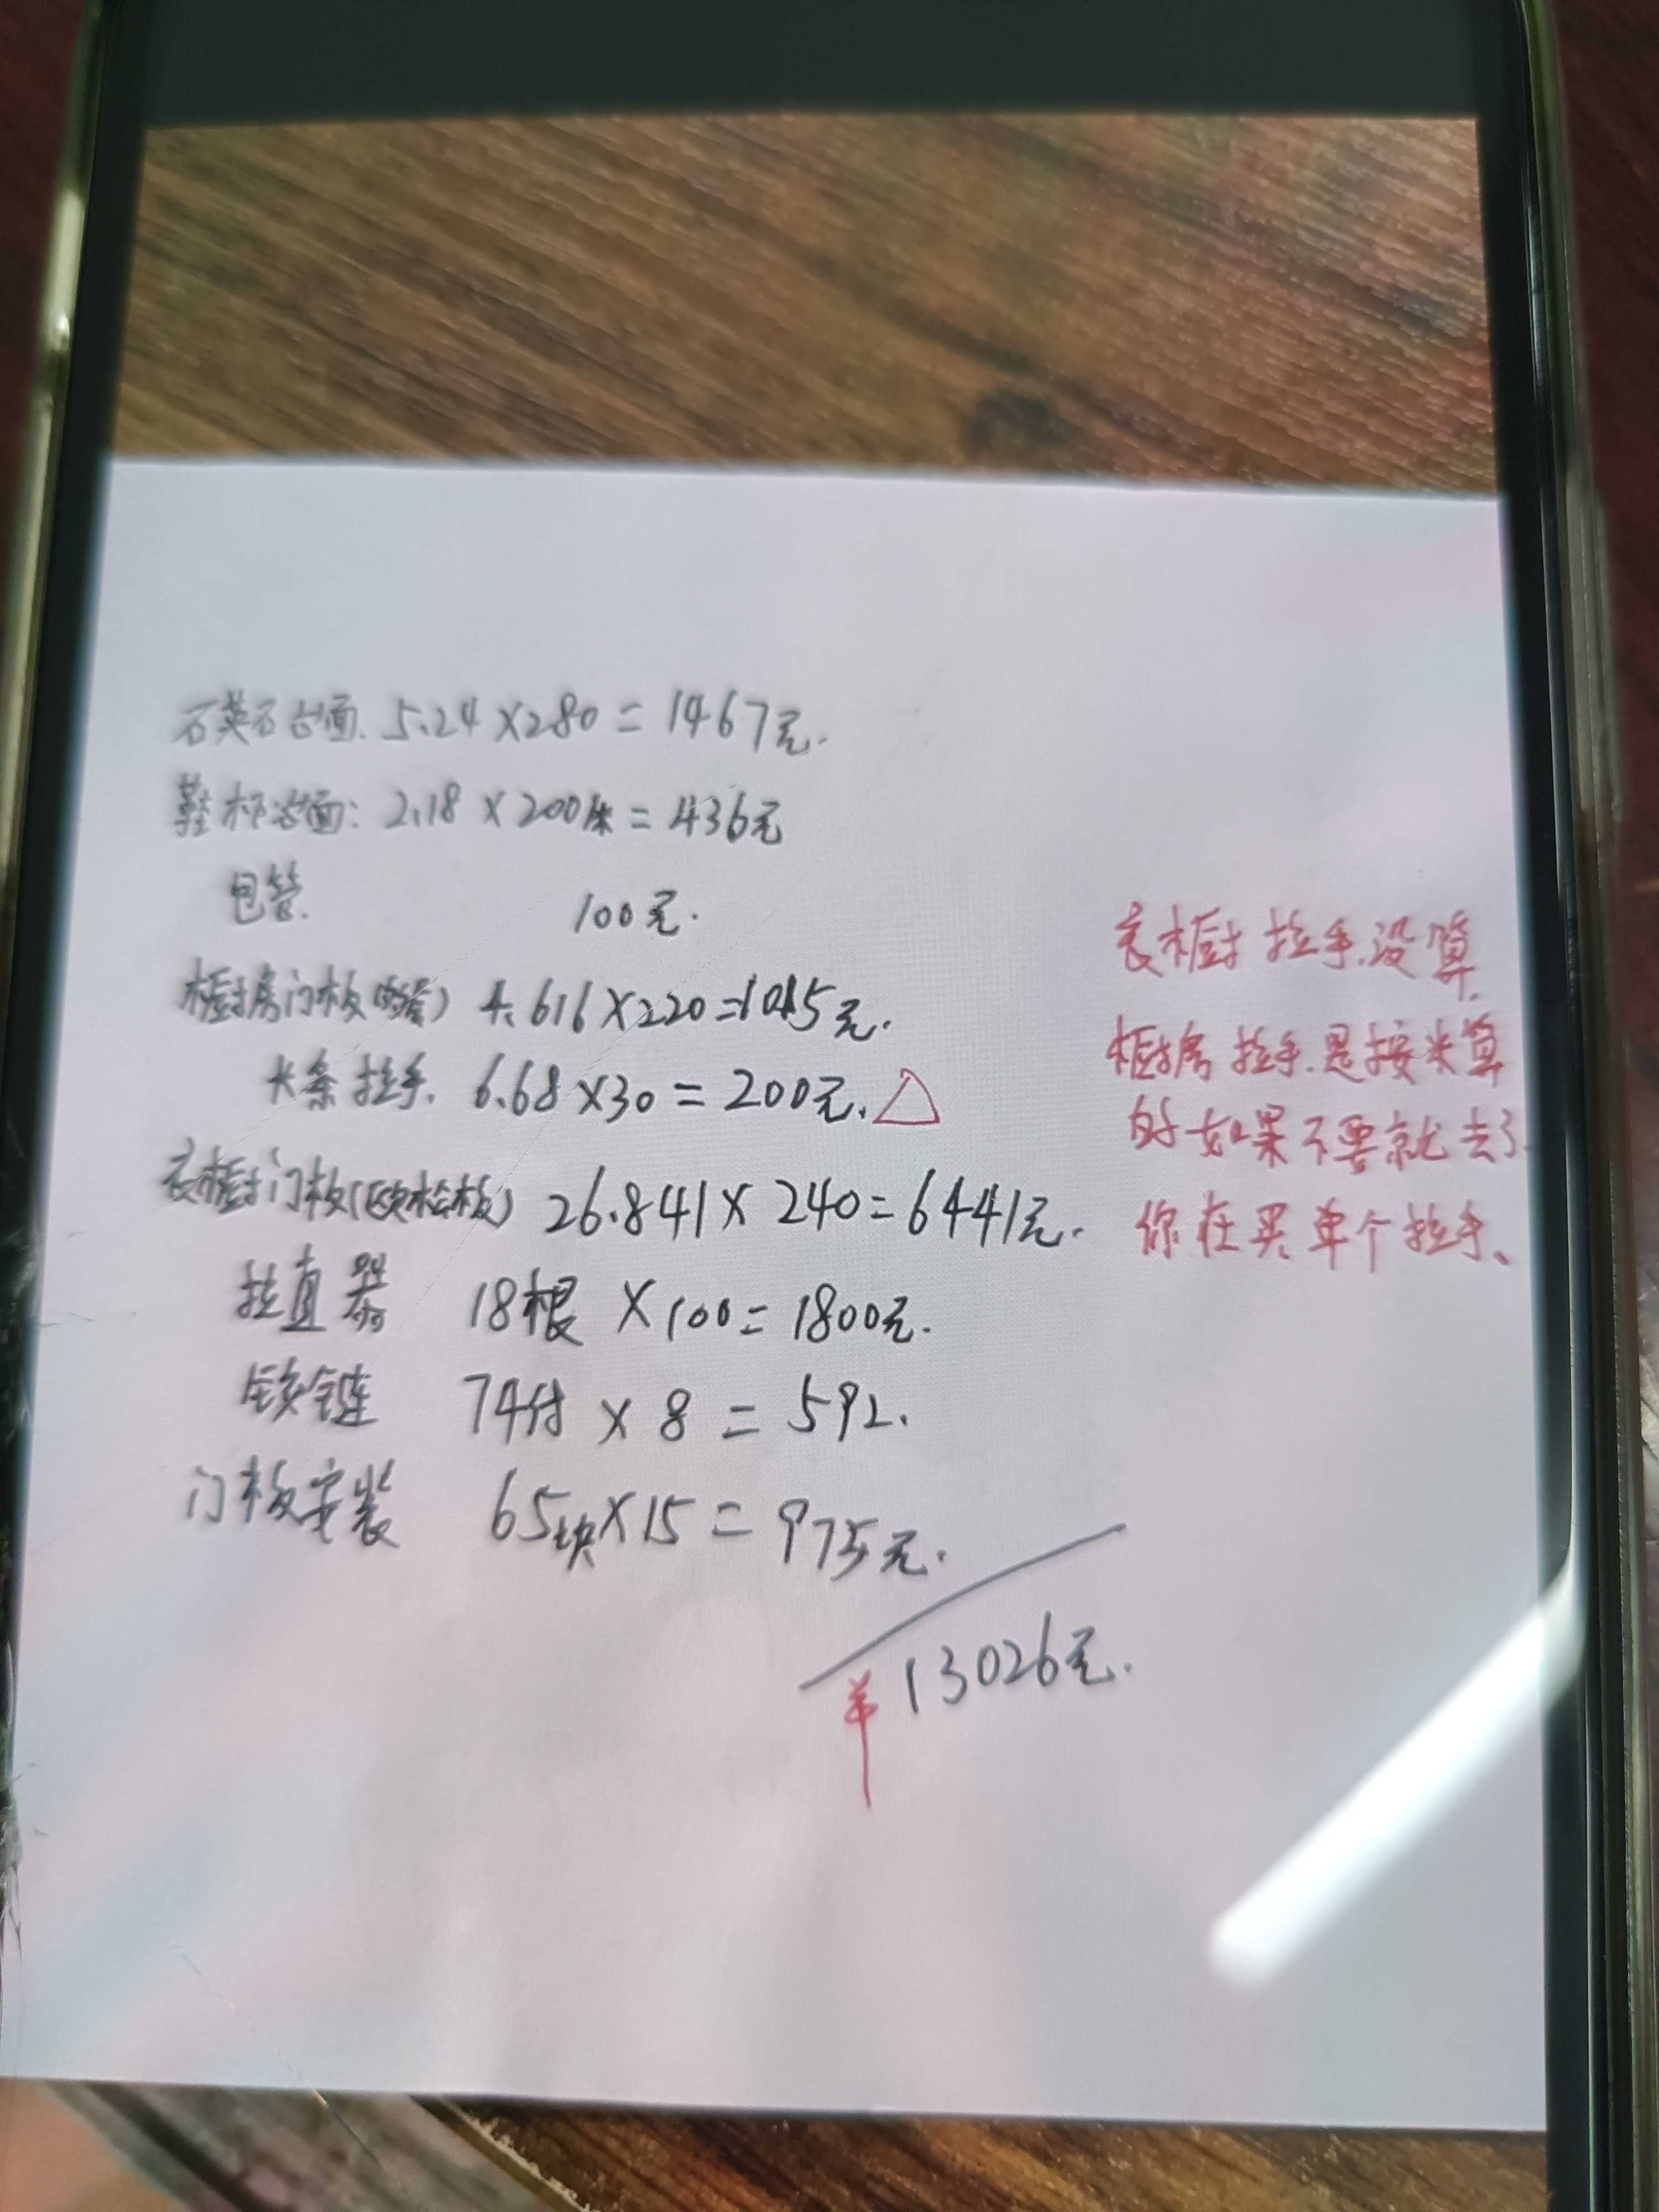 石英石台面. 5.24×280=1467元.
鞋柜台面: 2.18×200/米=436元
包管. 100元.
橱房门板 4.616×220=1015元.
大条拉手. 6.68×30=200元. △
衣橱门板(欧松板) 26.841×240=6441元.
拉直器 18根×100=1800元.
铰链 74付×8=592.
门板安装 65块×15=975元.
¥13026元.
衣橱拉手.没算.
橱房拉手.是按米算
的如果不要就去了.
你在买单个拉手、